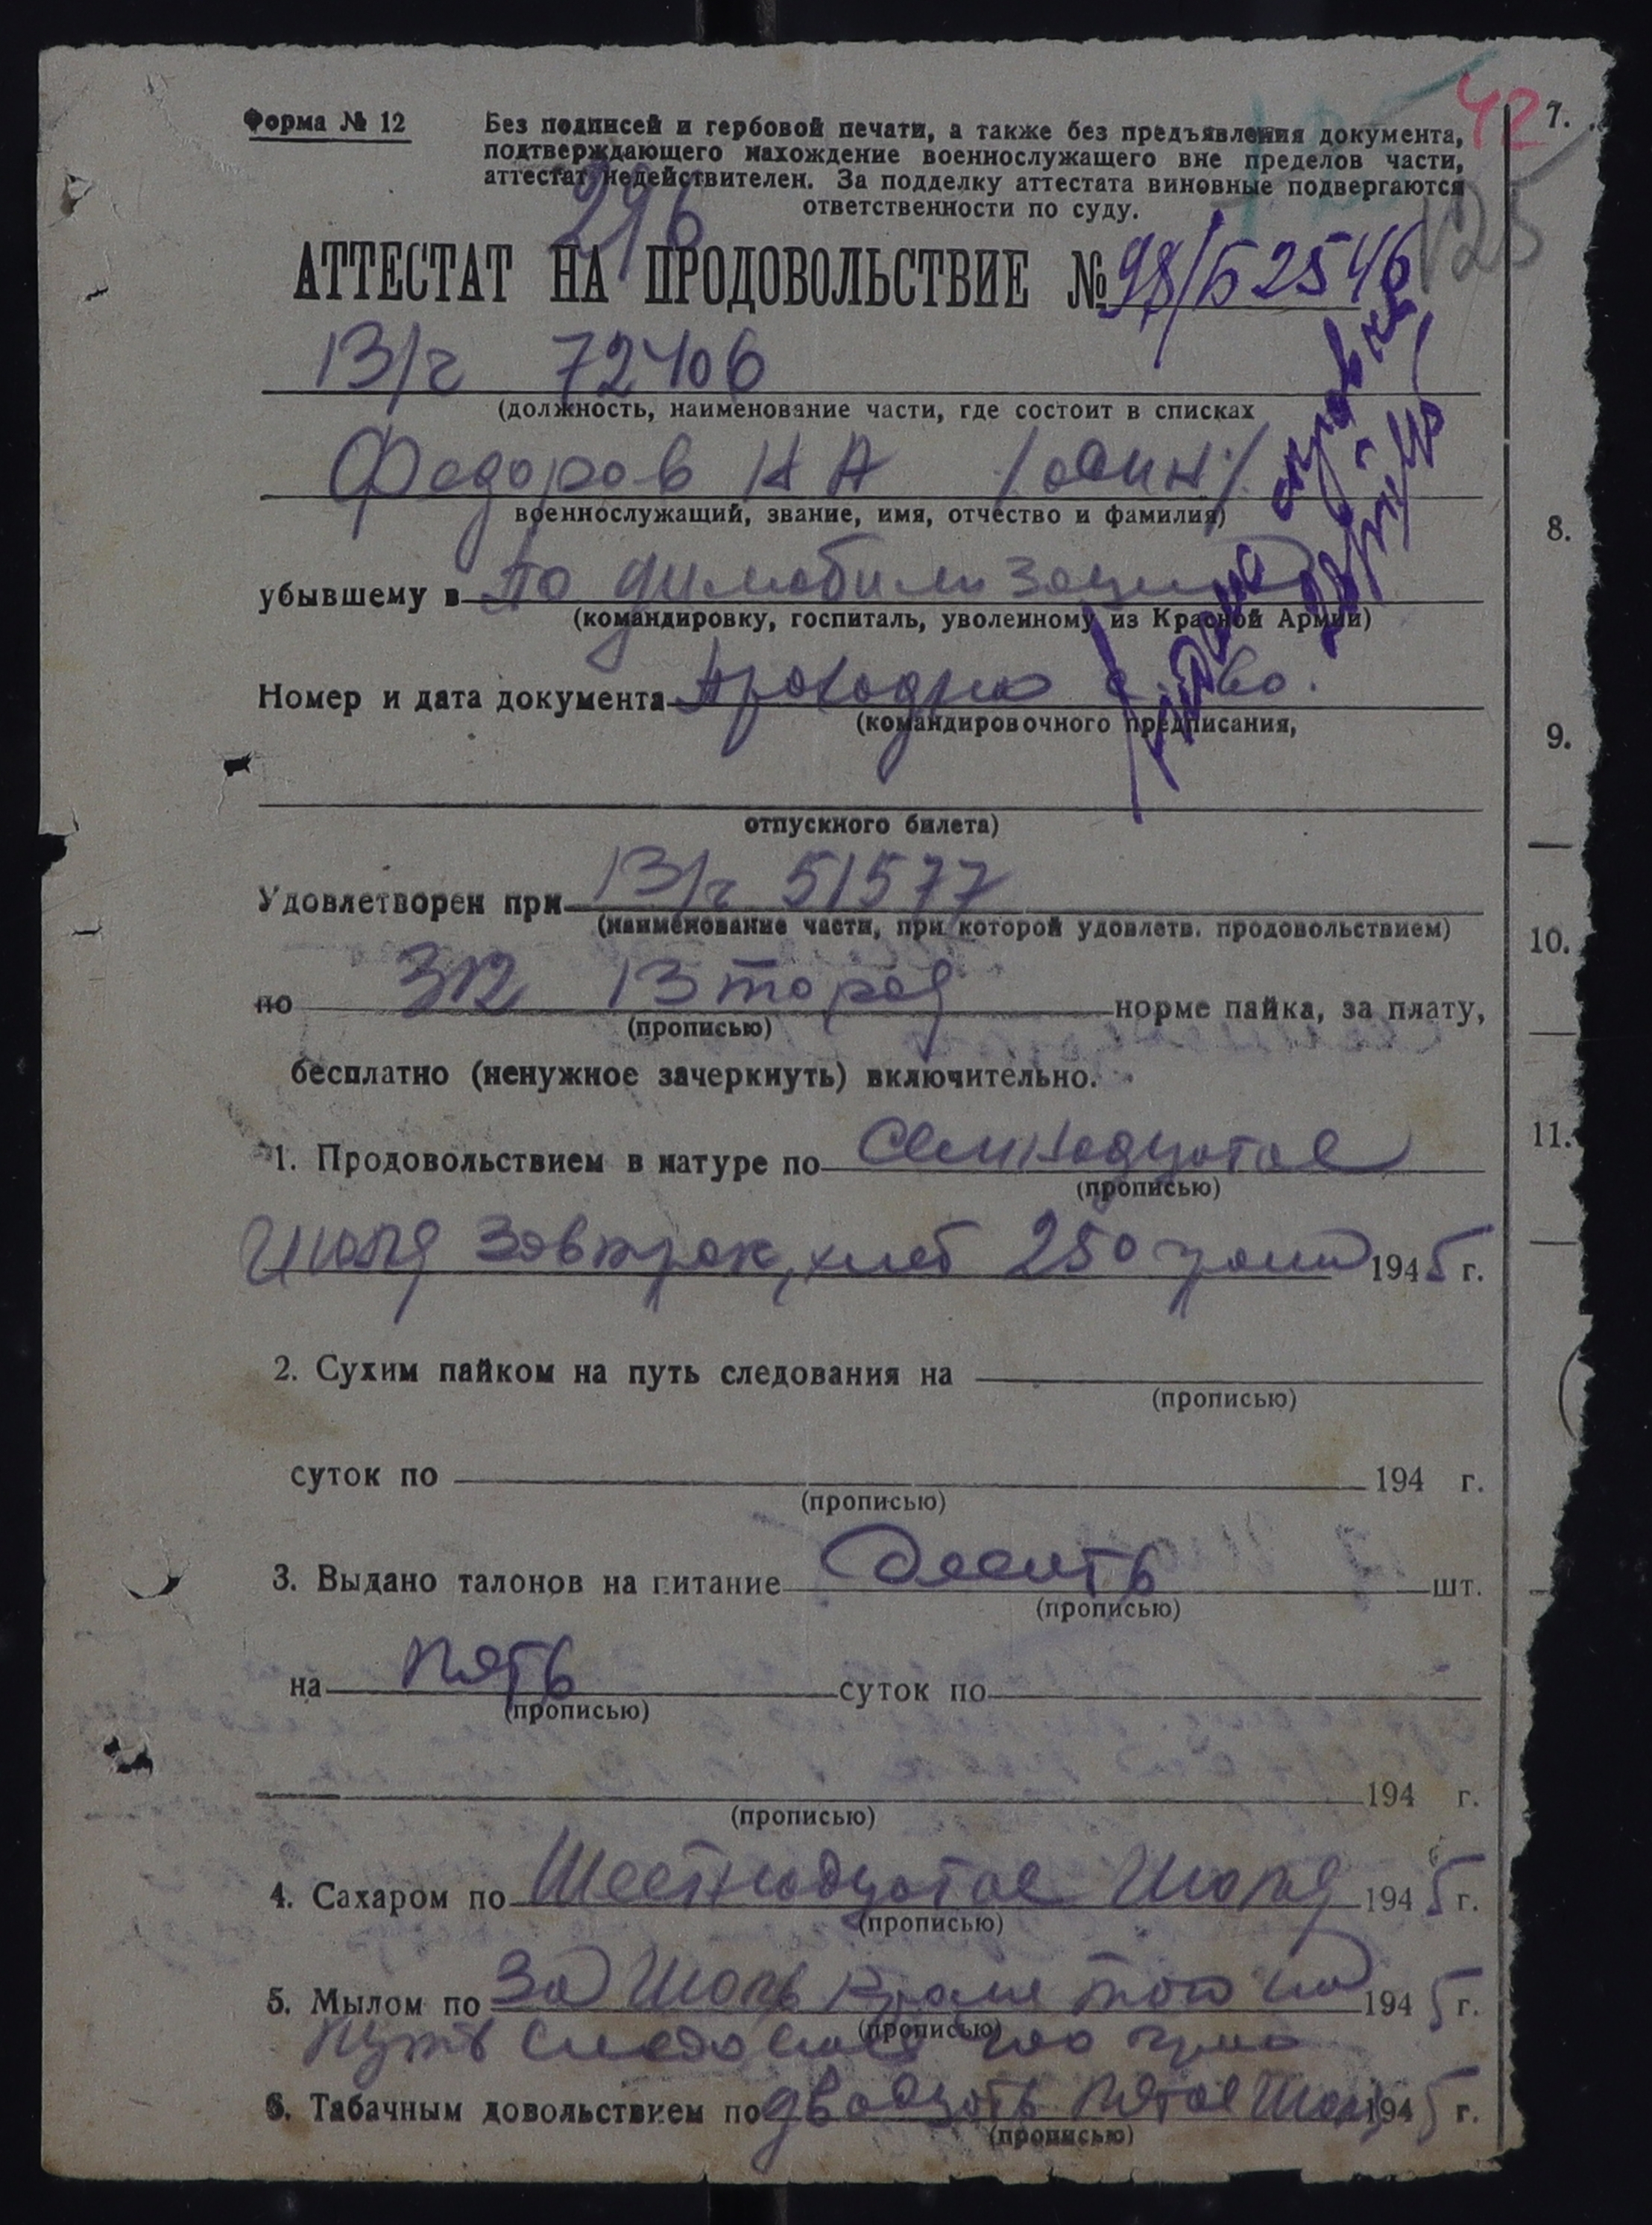 42
125
Форма № 12
Без подписей и гербовой печати, а также без предъявления документа,
подтверждающего нахождение военнослужащего вне пределов части,
аттестат недействителен. За подделку аттестата виновные подвергаются
ответственности по суду.
296
АТТЕСТАТ НА ПРОДОВОЛЬСТВИЕ № 98/Б 2546
В/ч 72406
(должность, наименование части, где состоит в списках
Федоров Н А /один/
военнослужащий, звание, имя, отчество и фамилия)
убывшему в По димобилизации
(командировку, госпиталь, уволенному из Красной Армии)
Номер и дата документа Проходное с-во.
(командировочного предписания,
отпускного билета)
Удовлетворен при В/ч 51577
(наименование части, при которой удовлетв. продовольствием)
по 312 Вторая норме пайка, за плату,
(прописью)
бесплатно (ненужное зачеркнуть) включительно.
1. Продовольствием в натуре по Семнадцатое
(прописью)
Июля завтрак, хлеб 250 грамм 1945 г.
2. Сухим пайком на путь следования на
(прописью)
суток по 194 г.
(прописью)
3. Выдано талонов на питание Десить шт.
(прописью)
на Пять суток по
(прописью)
194 г.
(прописью)
4. Сахаром по Шестнадцатое Июля 1945 г.
(прописью)
5. Мылом по За Июль кроме того на 1945 г.
(прописью)
путь
6. Табачным довольствием по двадцать пятое Июля 1945 г.
(прописью)
7.
8.
9.
10.
11.